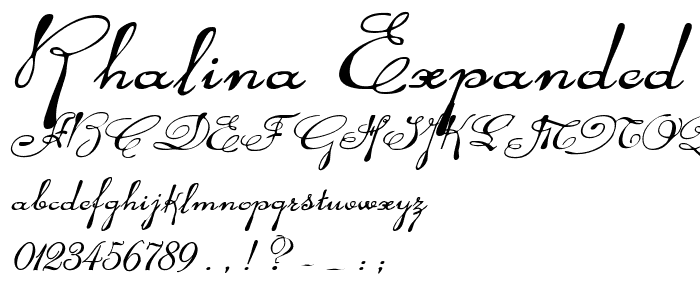 Rhalina Expanded
ABCDEFGHIJKLMNOQ
abcdefghijklmnopqrstuvwxyz
0123456789.,!?-_:;